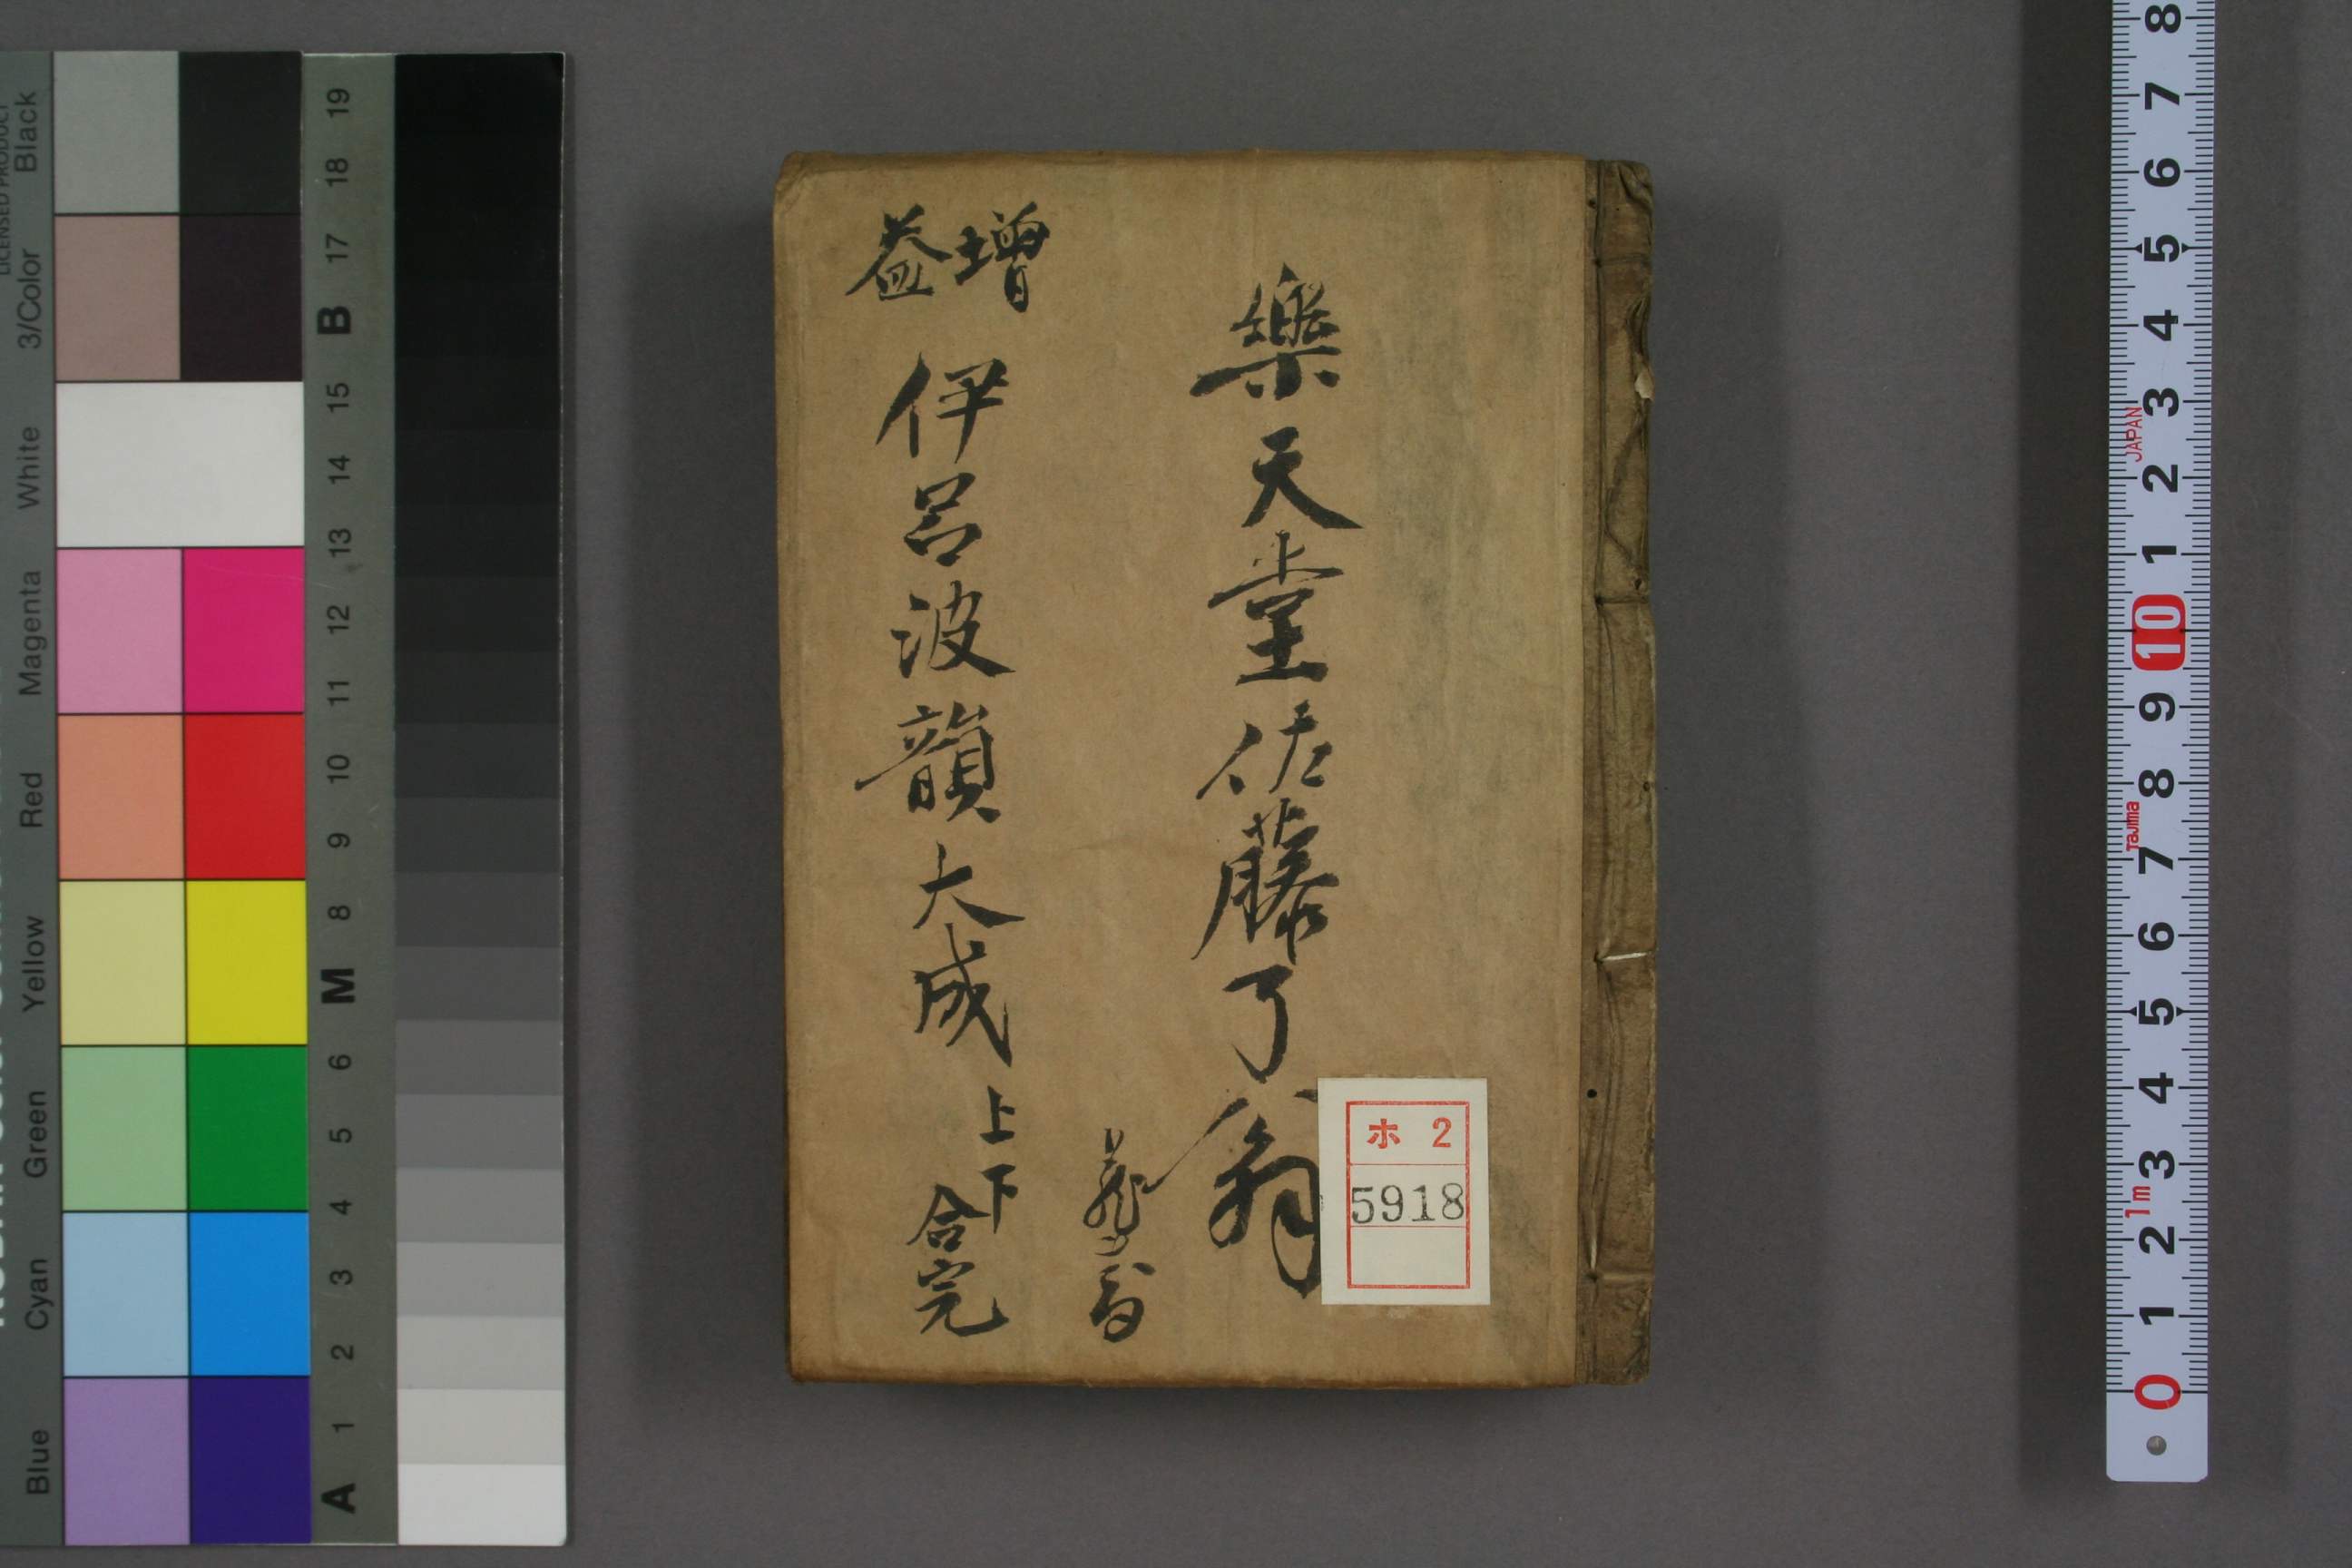 樂天堂佐藤了翁
増益 伊呂波韻大成 上下合完
ホ 2
5918
Blue Cyan Green Yellow Red Magenta White 3/Color Black
LICENSED PRODUCT
A 1 2 3 4 5 6 M 8 9 10 11 12 13 14 15 B 17 18 19
0 1 2 3 4 5 6 7 8 9 10 1 2 3 4 5 6 7 8
1m
Tajima
JAPAN